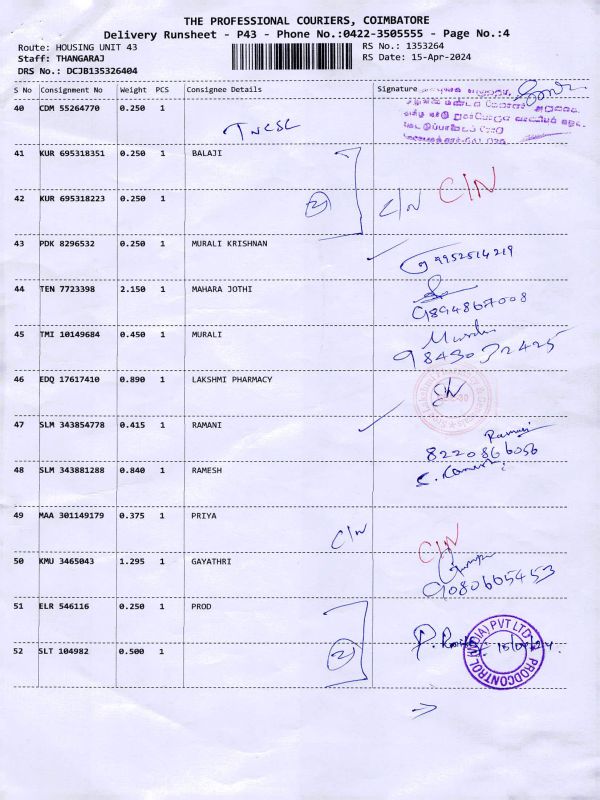 THE PROFESSIONAL COURIERS, COIMBATORE
Delivery Runsheet - P43 - Phone No.:0422-3505555 - Page No.:4
Route: HOUSING UNIT 43 RS No.: 1353264
Staff: THANGARAJ RS Date: 15-Apr-2024
DRS No.: DCJB135326404
S No Consignment No Weight PCS Consignee Details Signature
40 CDM 55264770 0.250 1
TNCSC
41 KUR 695318351 0.250 1 BALAJI
C/N C/N
42 KUR 695318223 0.250 1
43 PDK 8296532 0.250 1 MURALI KRISHNAN
9952514219
44 TEN 7723398 2.150 1 MAHARA JOTHI
9894867008
45 TMI 10149684 0.450 1 MURALI
Murali
9843032425
46 EDQ 17617410 0.890 1 LAKSHMI PHARMACY
47 SLM 343854778 0.415 1 RAMANI
Ramani
8220866056
48 SLM 343881288 0.840 1 RAMESH
49 MAA 301149179 0.375 1 PRIYA
C/N C/N
50 KMU 3465043 1.295 1 GAYATHRI
9080605453
51 ELR 546116 0.250 1 PROD
52 SLT 104982 0.500 1
15/04/24
PRODCONTROL (INDIA) PVT LTD